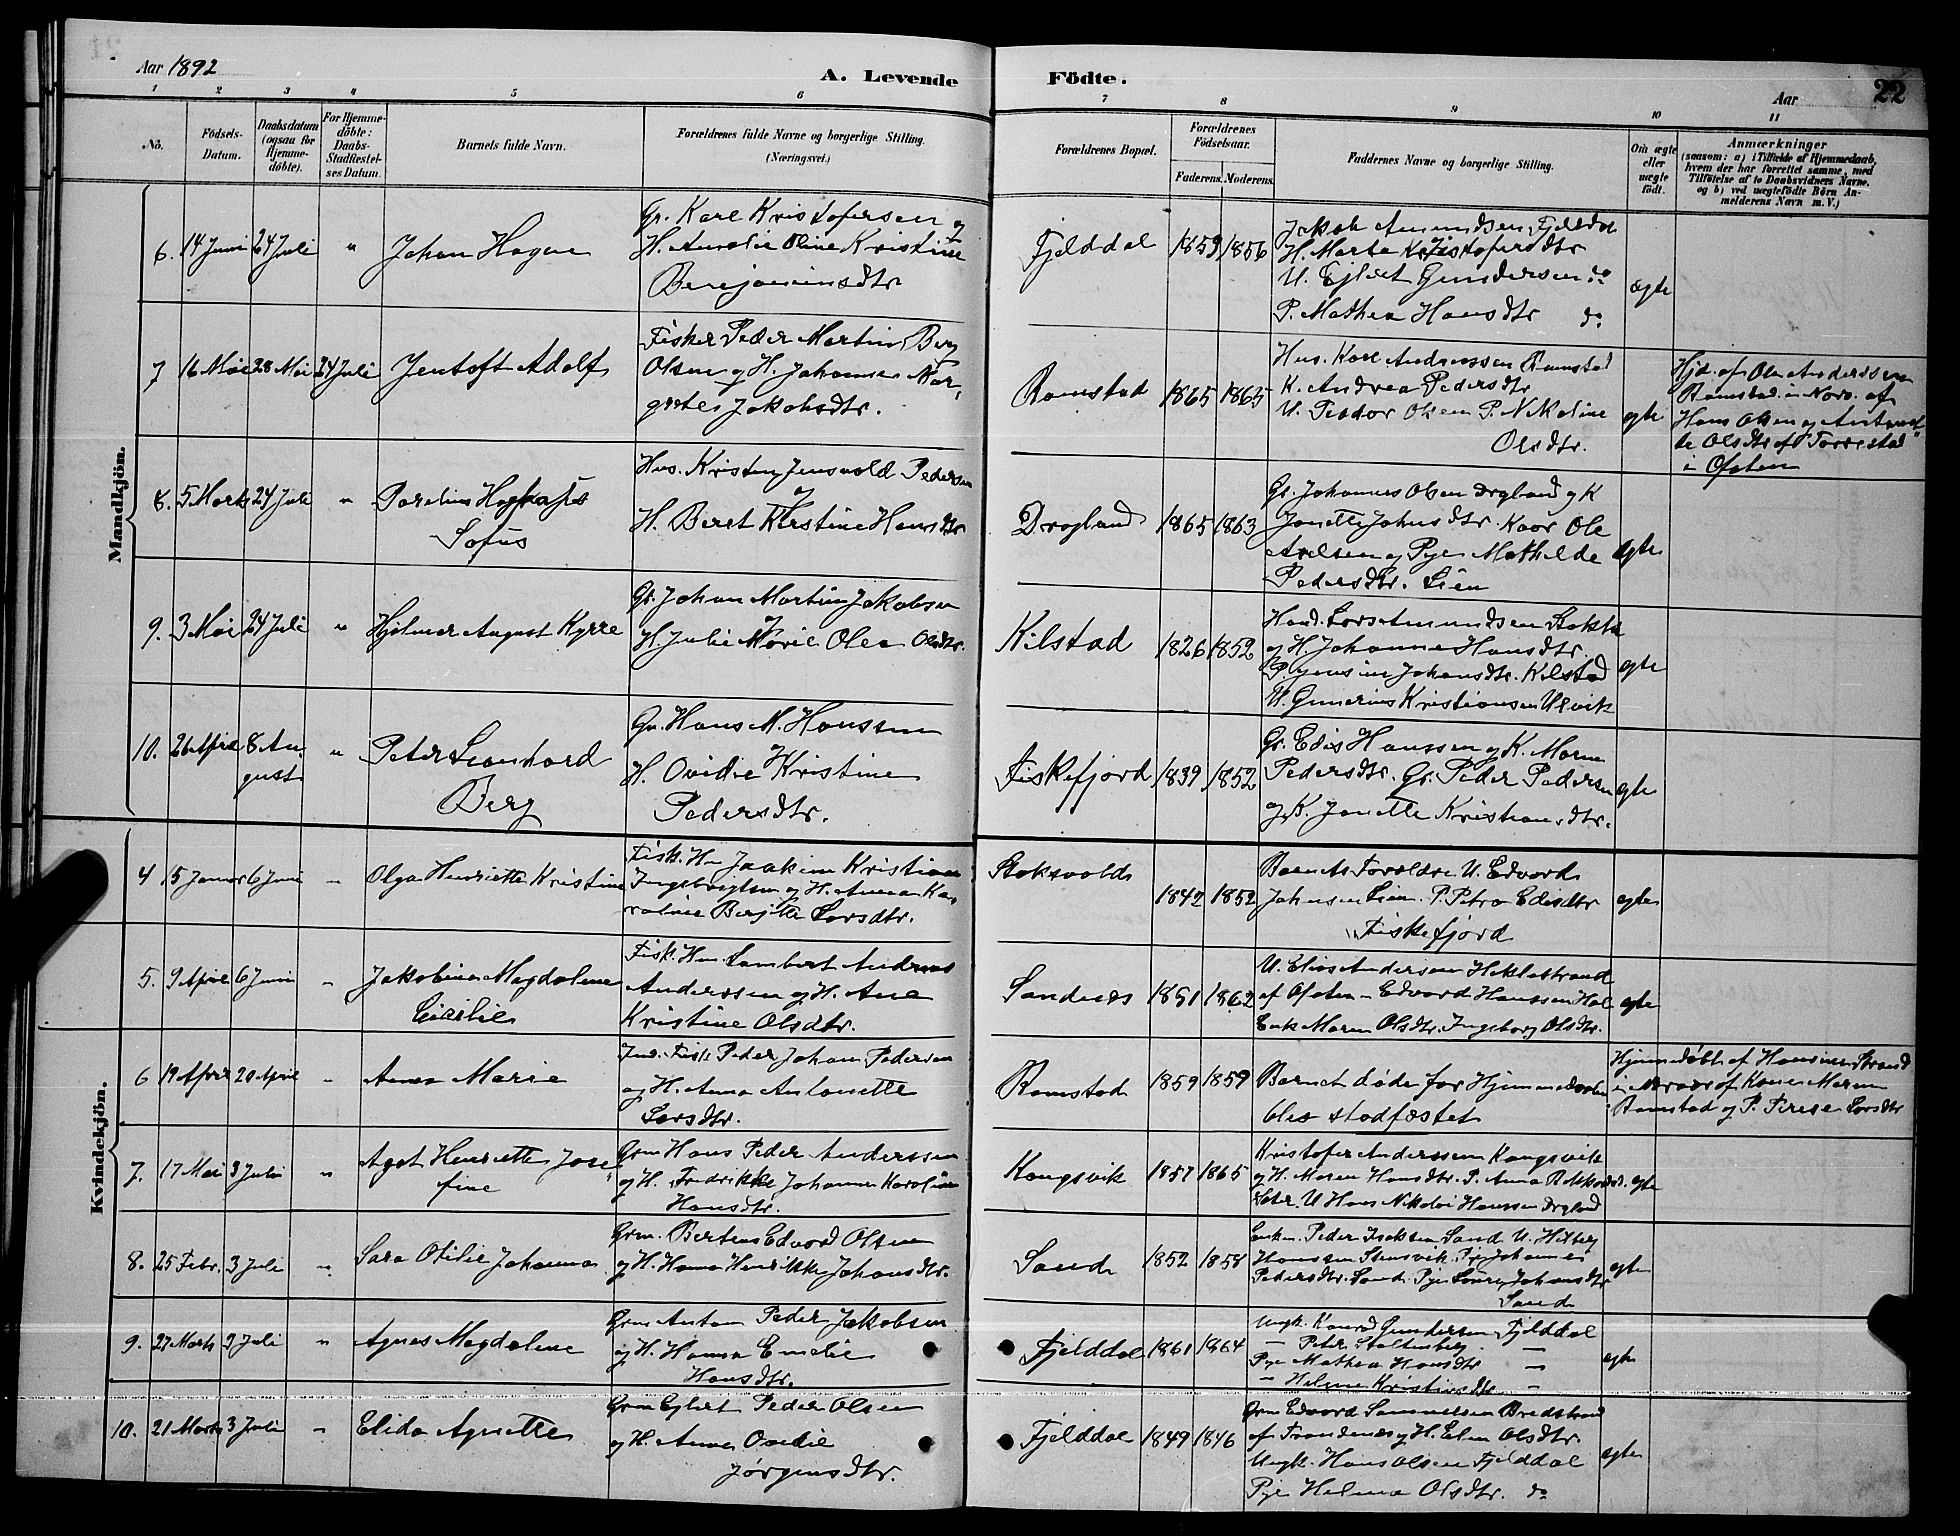 Aar 1892
A. Levende Födte.
Aar
22
1 2 3 4 5 6 7 8 9 10 11
No.
Födsels-
Datum.
Daabsdatum
(ogsaa for
Hjemme-
döbte).
For Hjemme-
döbte:
Daabs-
Stadfæstel-
ses Datum.
Barnets fulde Navn.
Forældrenes fulde Navne og borgerlige Stilling.
(Næringsvei.)
Forældrenes Bopæl.
Forældrenes
Födselsaar.
Faderens. Moderens.
Faddernes Navne og borgerlige Stilling.
Om ægte
eller
uægte
födt.
Anmærkninger
(saasom: a) i Tilfælde af Hjemmedaab,
hvem der har forrettet samme, med
Tilföielse af to Daabsvidners Navne.
og b) ved uægtefödte Börn An-
melderens Navn m. V.)
Mandkjön.
6. 14 Juni 24 Juli " Johan Hagen
Gr. Karl Kristofersen og
H. Amalie Oline Kristine
Benjaminsdtr
Fjelddal 1859 1856
Jakob Amundsen, Fjelddal
H. Marta Kristofersdtr
U. Ejlert Gundersen do
P. Mathea Hansdtr do
ægte
7 16 Mai 28 Mai 24 Juli Jentoft Adolf
Fisker Peder Martin Berg
Olsen og H. Johanna Mar-
grete Jakobsdtr.
Ramstad 1865 1865
Hus. Karl Andreassen Ramstad
K. Andrea Pedersdtr
U. Peder Olsen P. Nikoline
Olsdtr.
ægte
Hjd. af Ole Anderssen
Ramstad i Nærv. af
Hans Olsen og
Olsdtr af Torrestad
i Ofoten
8. 5 Marts 24 Juli "
Sofus
Hus. Kristen Jensvold Pedersen
og
H. Beret Kirstine Hansdtr
Dragland 1865 1863
Gr. Johannes Olsen Dragland og K
Janette Johnsdtr. Ole
Axelsen og Pige Mathilde
Pedersdtr. Lien
ægte
9. 3 Mai 24 Juli " Hjalmar August Kyrre
Gr. Johan Martin Jakobsen
og
H. Julie Marie Olea Olsdtr.
Kilstad 1826 1852
Hand. Lars Amundsen
og H. Johanne Hansdtr.
P. Jensine Johansdtr. Kilstad
U. Gunerius Kristiansen Ulvik
ægte
10. 26 April 8 Au-
gust " Peter Leonhard
Berg
Gr. Hans M. Hanssen
og
H. Ovidie Kristine
Pedersdtr.
Fiskefjord 1839 1852
Gr. Edis Hanssen og K. Maren
Pedersdtr. Gr. Peder Pedersen
og K. Janette Kristiansdtr.
ægte
Kvindekjön.
4 15 Januar 6 Juni " Olga Henriette Kristine
Fisk. Hu. Joakim Kristian
Ingebrigtsen og H. Anna Ka-
roline Berjitte Larsdtr.
Stoksvold 1842 1852
Barnets Forældre U. Edvard
Johansen Lien. P. Petra Edisdtr
Fiskefjord
ægte
5. 9 April 6 Juni " Jakobine Magdalene
Cicilie
Fisk. Hu. Lambert Andreas
Anderssen og H. Ane
Kristine Olsdtr.
Sandnes 1851 1862
U. Elias Andersen Heklestrand
af Ofoten – Edvard Hanssen Hol
Enk Maren Olsdtr. Ingeborg Olsdtr.
ægte
6 19 April 20 April " Anna Marie
Ind. Fisk Peder Johan Pedersen
og H. Anna Antonette
Larsdtr.
Ramstad 1859 1859
Barnet døde før Hjemmedaaben
blev stadfæstet
Hjemmedøbt af Strand
i Nærvær af Kone Maren
Ramstad og P. Larsdtr
7. 17 Mai 3 Juli " Agot Henriette Jose-
fine
Grm Hans Peder Anderssen
og H. Fredrikke Johanna Karoline
Hansdtr.
Kongsvik 1857 1865
Kristofer Anderssen Kongsvik
og H. Maren Hansdtr. P. Anna
U Hans Nikolai Hanssen Dragland
ægte
8. 25 Febr. 3 Juli " Sara Otilie Johanna
Grm. Berteus Edvard Olsen
og H. Hanna Henrikke Johansdtr.
Sand 1852 1858
Enkm. Peder Isaksen Sand U. Hilberg
Hanssen Stensvik. Pig Johanna
Pedersdtr. Sand. Pige Johansdtr
Sand
ægte
9. 27 Marts 3 Juli " Agnes Magdalene
Grm Anton Peder Jakobsen
og H. Hanna Emelie
Hansdtr.
Fjelddal 1861 1864
Ungk. Konrad Gundersen, Fjelddal
– Peter Stoltenberg –
Pige Mathea Hansdtr –
– Helene Kristinesdtr –
ægte
10. 21 Marts 3 Juli " Elida Agnette
Grm Eylert Peder Olsen
og H. Anna Ovidie
Jørgensdtr.
Fjelddal 1849 1846
Grm Edvard Sammelsen Bredstrand
af Trondenes og H. Elen Olsdtr.
Ungk. Hans Olsen Fjelddal
Pige Helena Olsdtr. do
ægte